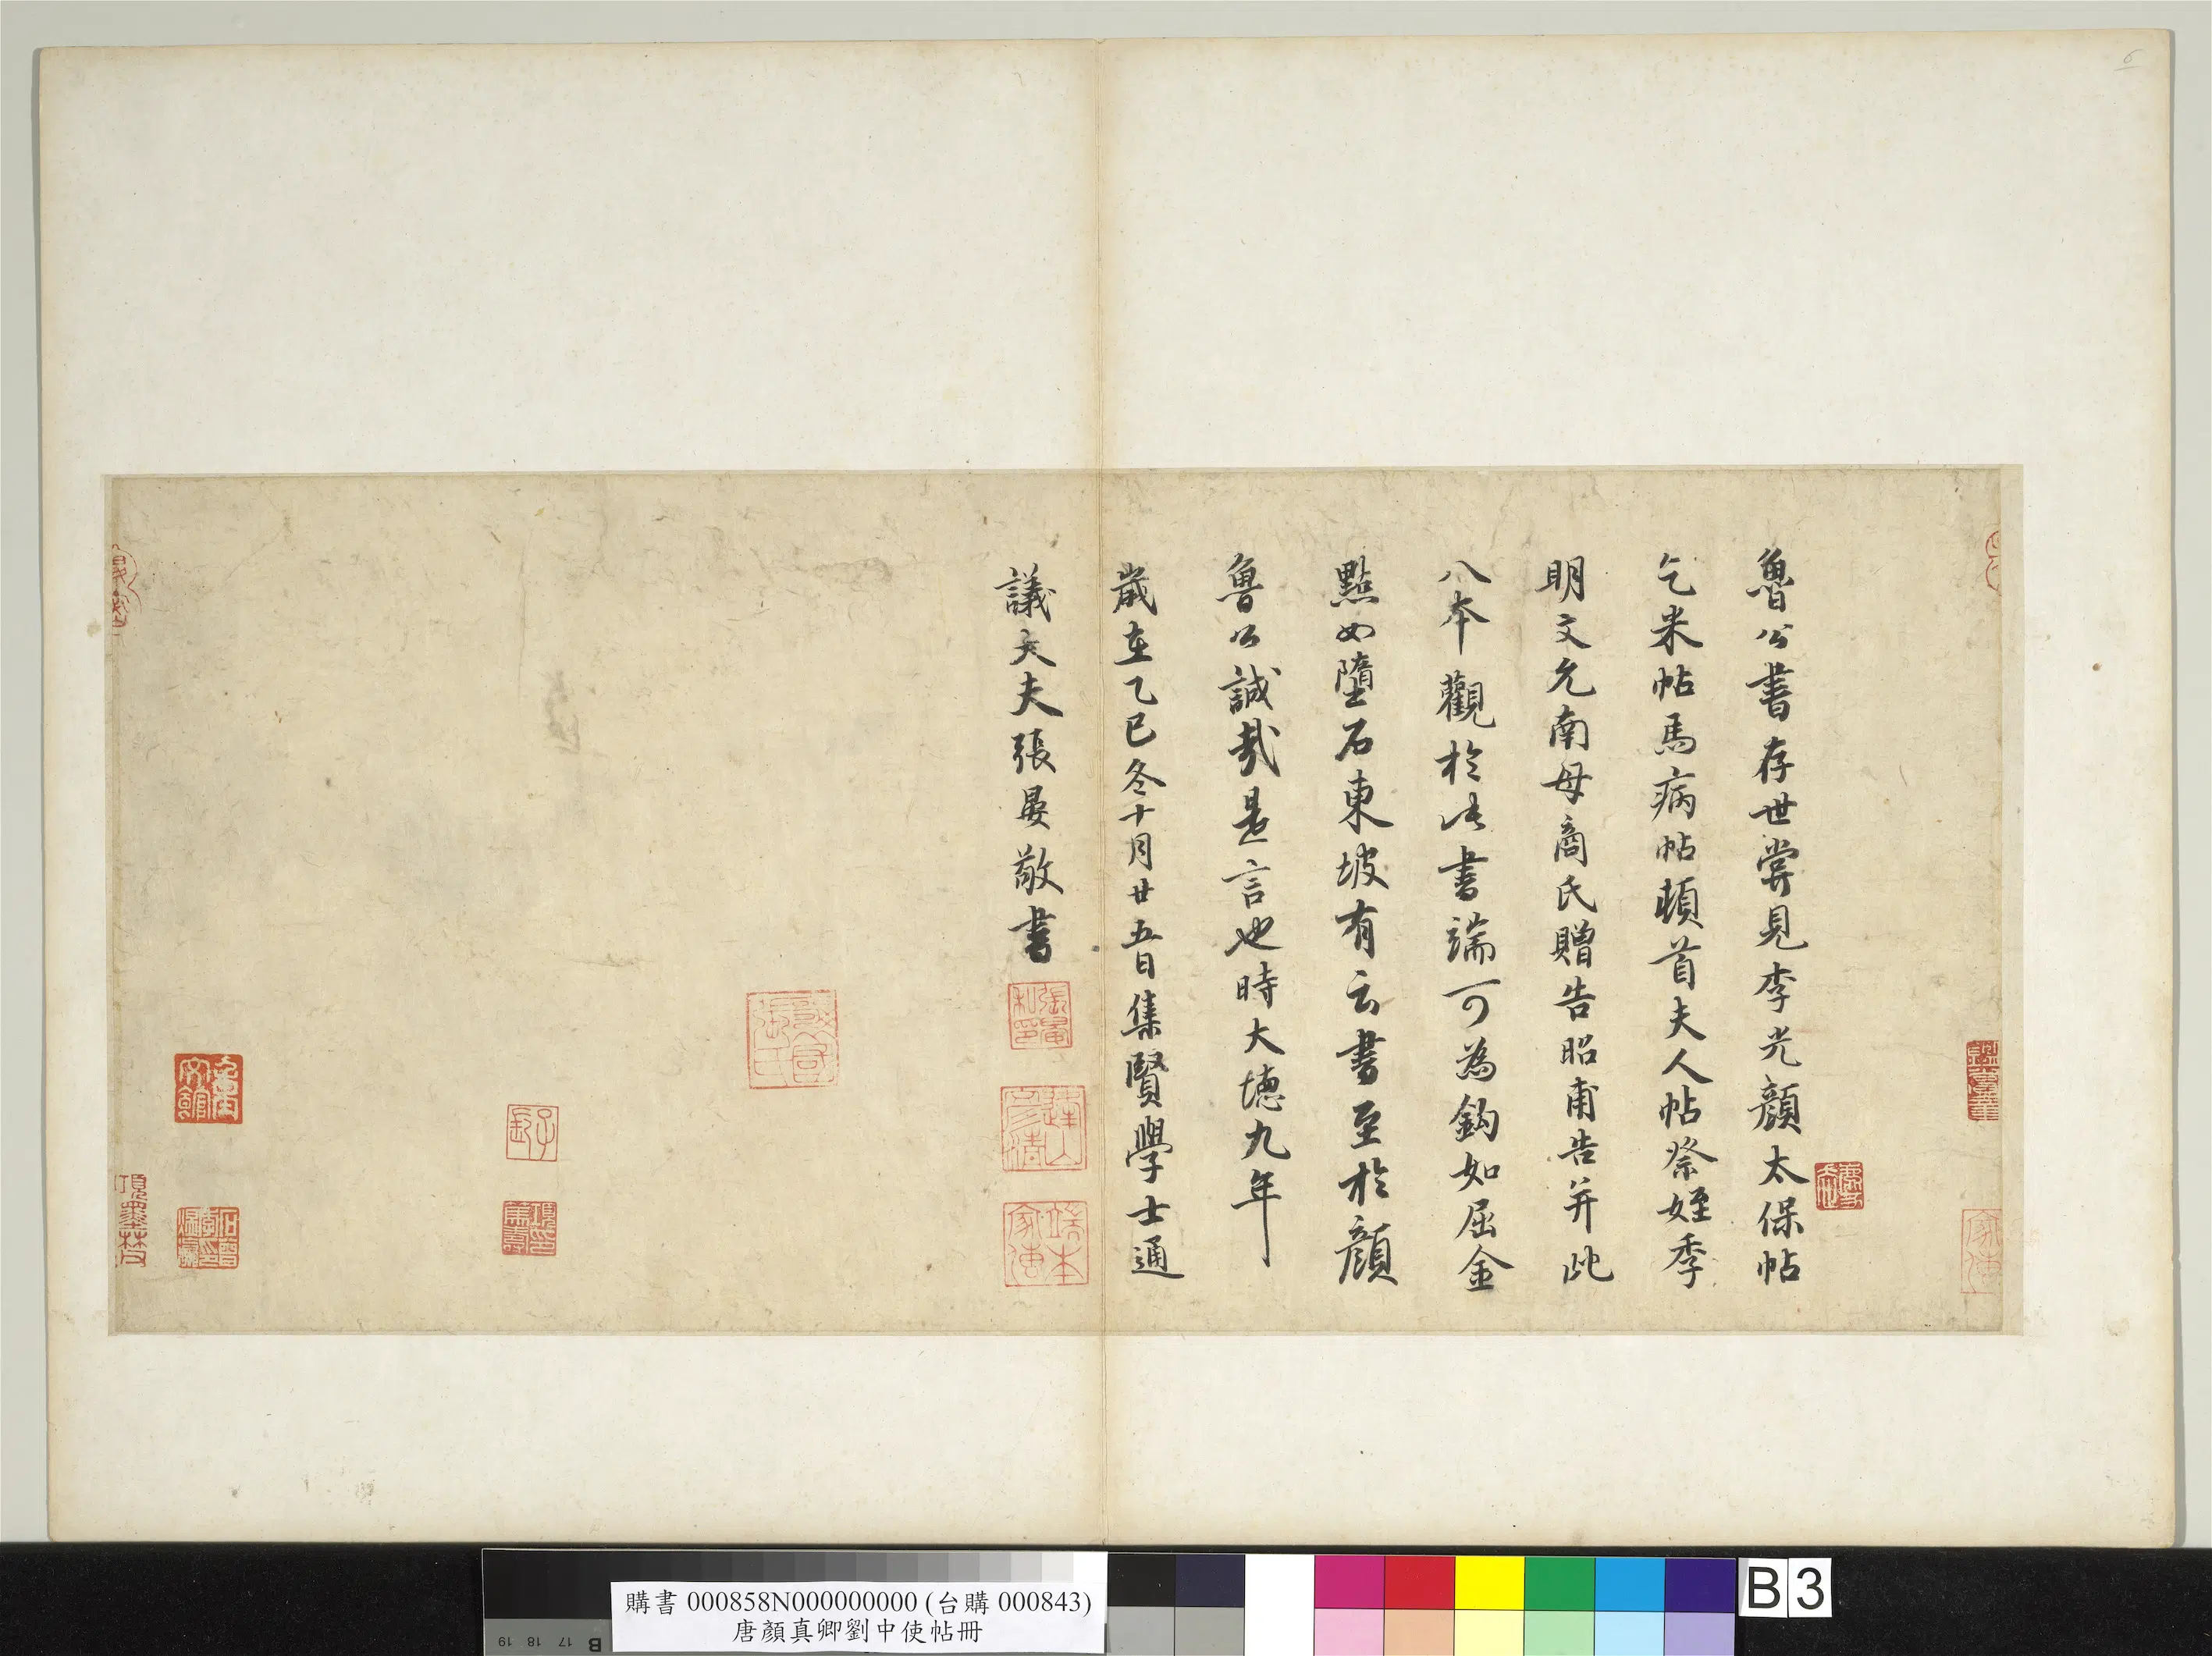 魯公書存世嘗見李光顏太保帖
乞米帖馬病帖頓首夫人帖祭姪季
明文允南母商氏贈告昭甫告并此
八本觀於此書端可為鈎如屈金
點如墮石東坡有云書至於顏
魯公誠哉是言也時大德九年
歲在乙巳冬十月廿五日集賢學士通
議大夫張晏敬書
端本
家傳
子孫
項墨林
家傳
購書 000858N000000000 (台購 000843)
唐顏真卿劉中使帖冊
B 17 18 19
B 3
6